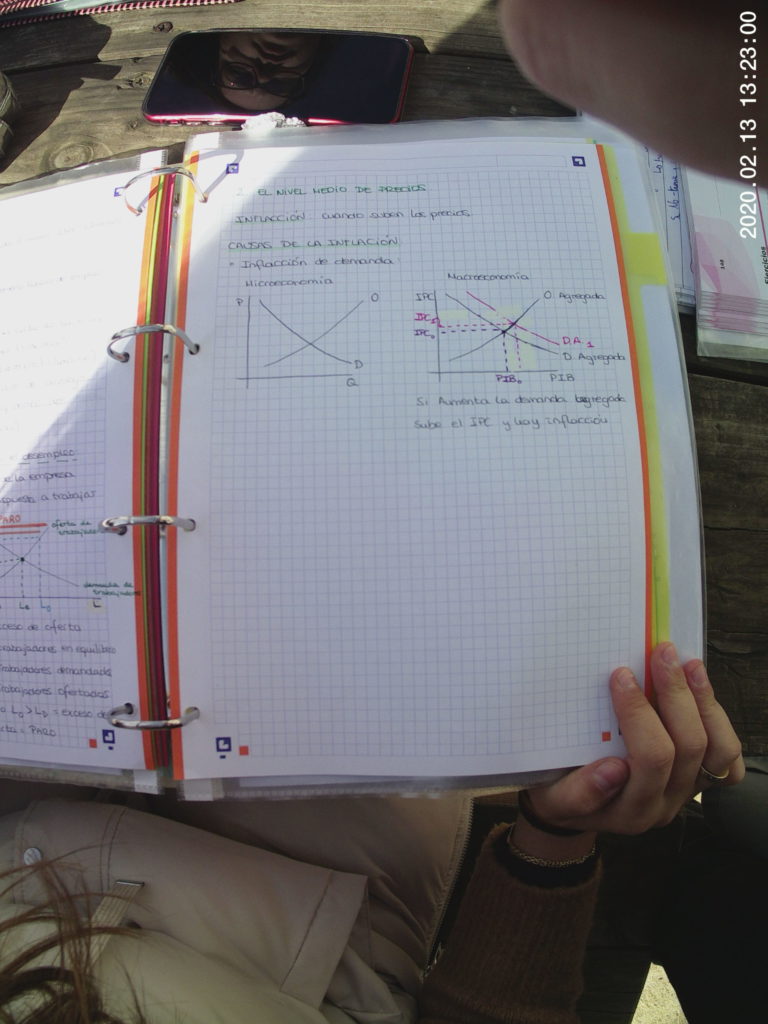 2020.02.13 13:23:00
2. EL NIVEL MEDIO DE PRECIOS
INFLACCIÓN: cuando suben los precios
CAUSAS DE LA INFLACIÓN
Inflacción de demanda:
Microeconomía
P
O
D
Q
Macroeconomía
IPC
O. Agregada
IPC1
IPC0
D.A.1
D. Agregada
PIB0
PIB
Si Aumenta la demanda agregada
sube el IPC y hay inflacción
desempleo
de la empresa
a trabajar
PARO
oferta de
trabajadores
demanda de
trabajadores
Le
LO
L
exceso de oferta
trabajadores en equilibrio
trabajadores demandados
trabajadores ofertados
LO > LD = exceso de
= PARO
Ejercicios